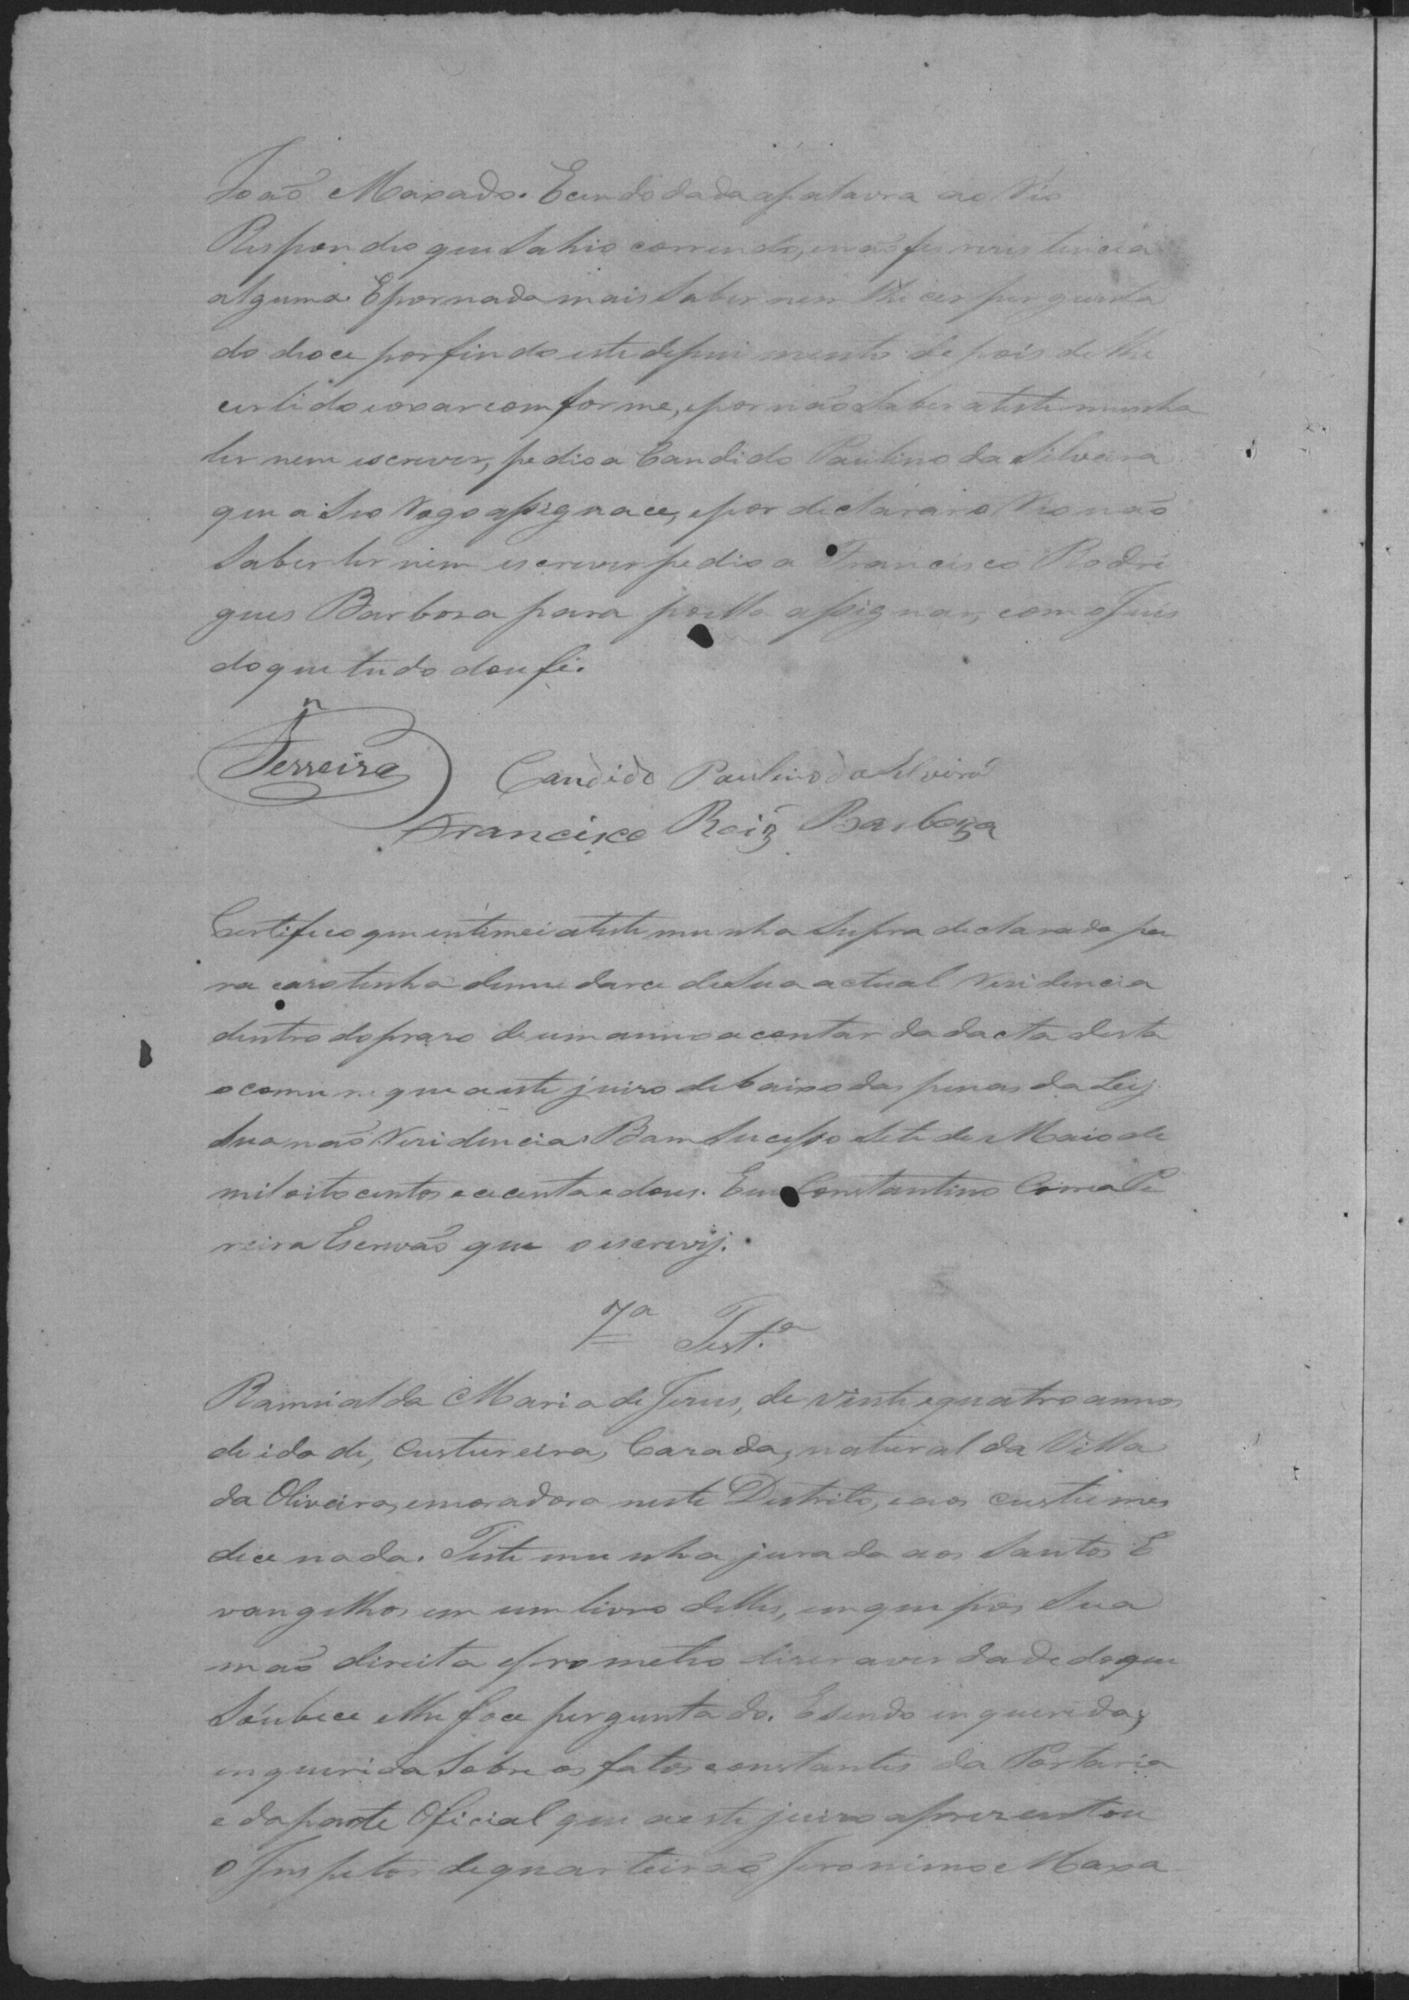 João Maxado. E cendo dada a palavra ao Réo
Respondeo que sahio correndo, e não fes rezistencia
alguma. E por nada mais saber nem lhe cer pergunta
do dioce por findo este depuimento depois de lhe
cer lido e oxar comforme, e por não saber a testemunha
ler nem escrever, pedio a Candido Paulino da Silveira
que a seo rogo assignace, e por declarar o Réo não
saber ler nem escrever pedio a Francisco Rodri
gues Barboza para por elle assignar, com o Juis
do que tudo dou fé.
Ferreira
Candido Paulino da Silveira
Francisco Roiz Barboza
Certifico que intimei a testemunha supra declarada pa
ra cazo tenha de mudarce de sua actual rezidencia
dentro do prazo de um anno a contar da dacta desta
o comunique a este juizo debaixo das penas da Ley
sua não rezidencia. Bom Sucesso sete de Maio de
mil oito centos e cecenta e dous. Eu Constantino Correa Pe
reira Escrivão que o escrevy.
7ª Test.ª
Ramualda Maria de Jezus, de vinte e quatro annos
de idade, Custureira, Cazada, natural da Villa
da Oliveira, e moradora neste Destrito, e aos custumes
dice nada. Testemunha jurada aos Santos E
vangelhos em um livro delles, em que pos sua
mão direita e prometeo dizer a verdade do que
soubece e lhe foce perguntado. E sendo inquerida,
inquerida sobre os fatos constantes da Portaria
e da parte Oficial que a este juizo aprezentou
o Inspetor de quarteirão Jeronimo Maxa